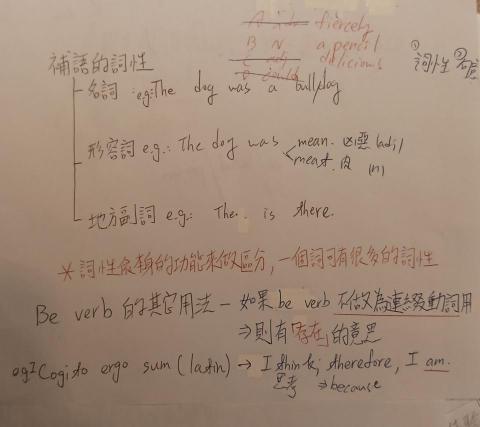 A adv fiercely
B N a pencil
C adj delicious
D could
① 詞性 ②
補語的詞性
名詞 :eg:The dog was a bulldog
形容詞 e.g.: The dog was mean. 凶惡 (adj)
meat. 肉 (n)
地方副詞 e.g: The. is there.
*詞性依本身的功能來做區分,一個詞可有很多的詞性
Be verb 的其它用法 – 如果 be verb 不做為連綴動詞用
⇒則有「存在」的意思
eg: Cogito ergo sum (latin) → I think; therefore, I am.
思考 ⇒because